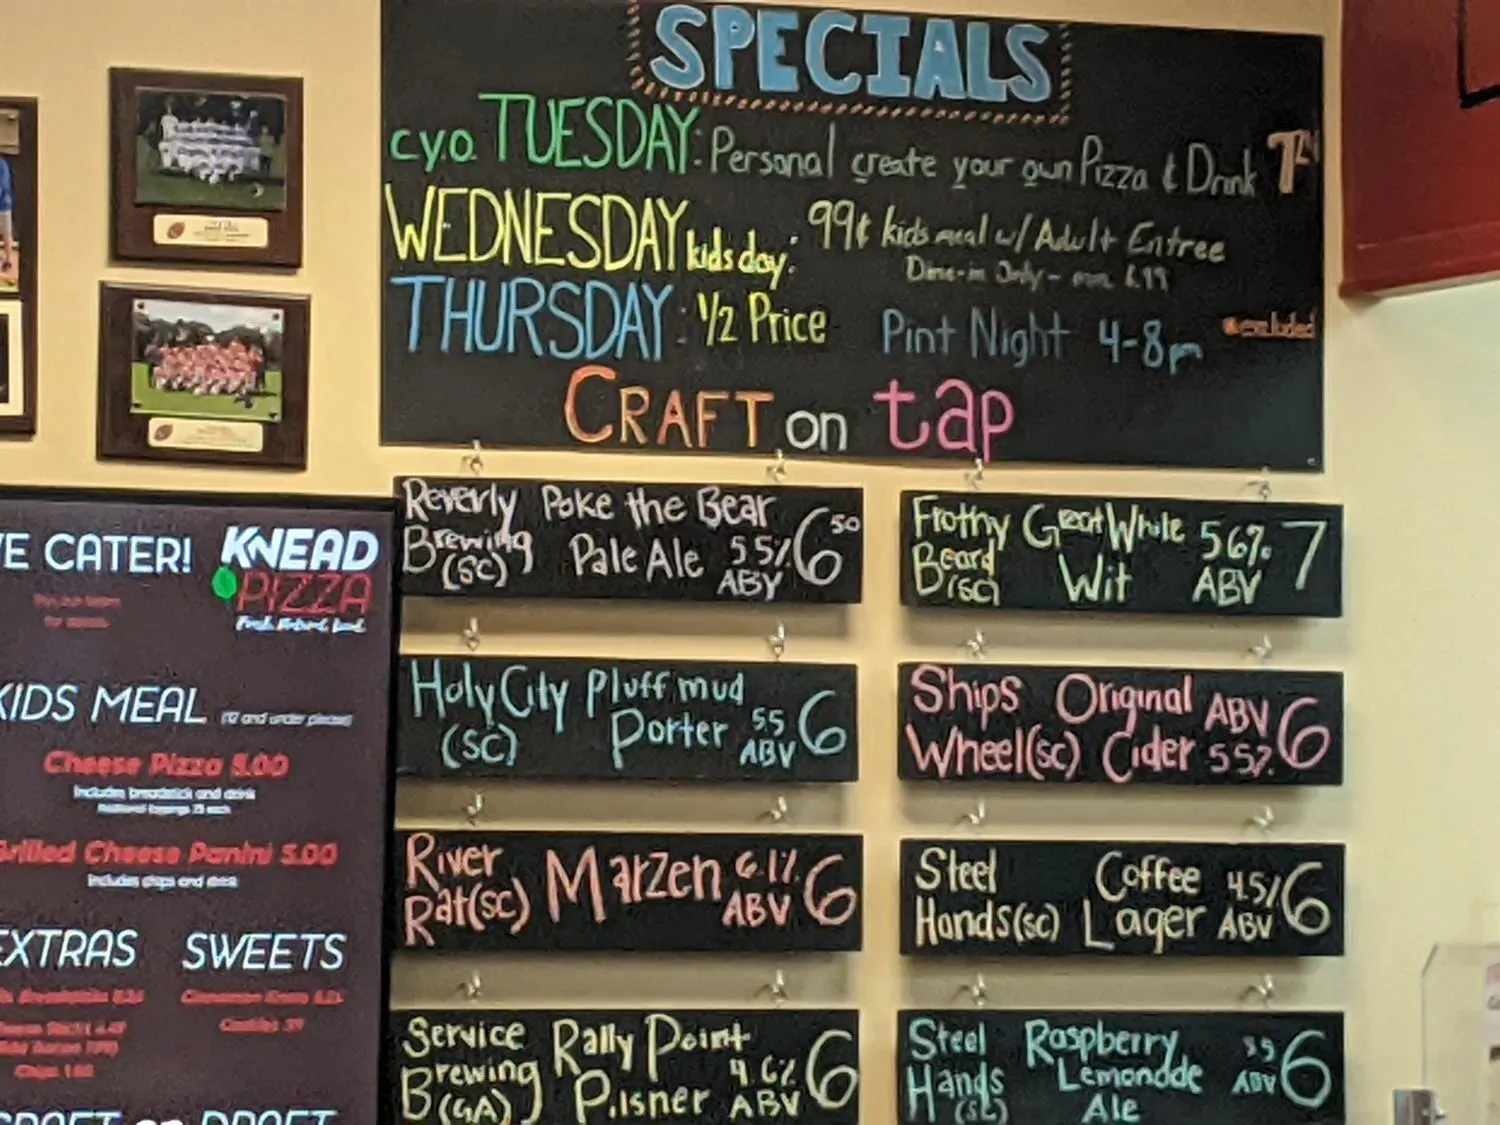 SPECIALS
C.Y.O. TUESDAY: Personal create your own Pizza & Drink
WEDNESDAY kids day: 99¢ kids meal w/ Adult Entree
Dine-in Only -
THURSDAY: 1/2 Price Pint Night 4-8pm excluded
CRAFT on tap
Reverly Poke the Bear 6 50
Brewing Pale Ale 5.5%
(SC) ABV
Frothy Great White 5.6% 7
Beard Wit ABV
(SC)
Holy City Pluff mud 6
(SC) Porter 5.5
ABV
Ships Original ABV 6
Wheel(SC) Cider 5.5%
River Marzen 6.1% 6
Rat(SC) ABV
Steel Coffee 4.5% 6
Hands(SC) Lager ABV
Service Rally Point 6
Brewing Pilsner 4.6%
(GA) ABV
Steel Raspberry 6
Hands Lemonade ABV
Ale
E CATER!
KNEAD
PIZZA
KIDS MEAL (12 and under please)
Cheese Pizza 5.00
Includes breadstick and drink
Grilled Cheese Panini 5.00
Includes chips and drink
EXTRAS SWEETS